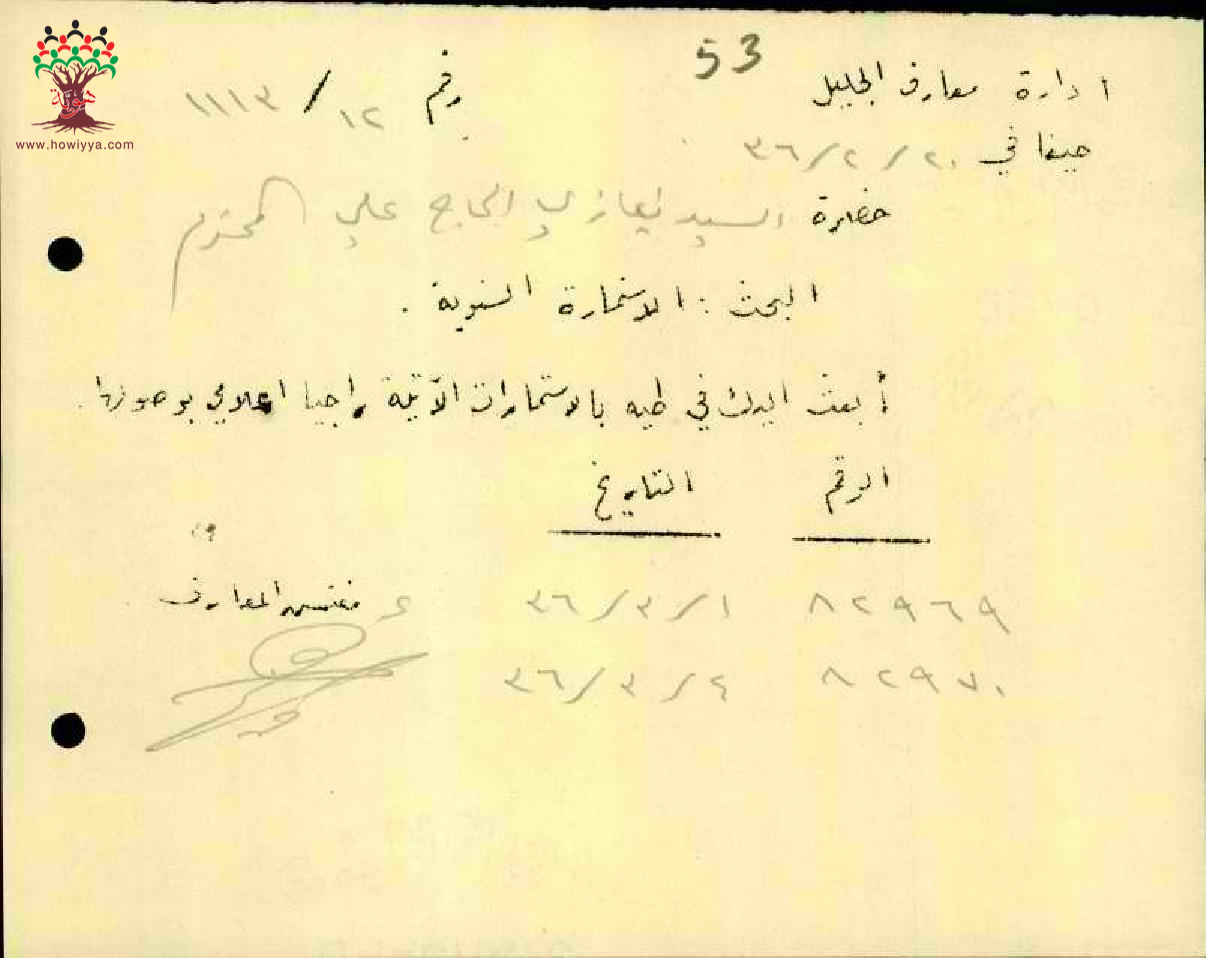 53
ادارة معارف الجليل
رقم ١٢ / ١١١٣
حيفا في ٢٠/٢/٣٦
حضرة السيد نيازي الحاج علي المحترم
البحث : الاستمارة السنوية .
أبعث اليك في طيه بالاستمارات الآتية راجيا اعلامي بوصولها .
الرقم التاريخ
٨٢٩٦٩ ٣٦/٣/١
ع مفتش المعارف
٨٢٩٧٠ ٣٦/٣/٤
هوية
www.howiyya.com